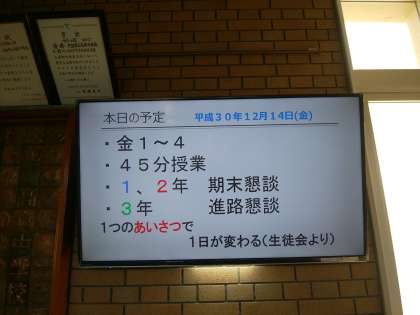 本日の予定　平成30年12月14日(金)
・金1～4
・45分授業
・1、2年　期末懇談
・3年　進路懇談
1つのあいさつで
1日が変わる(生徒会より)